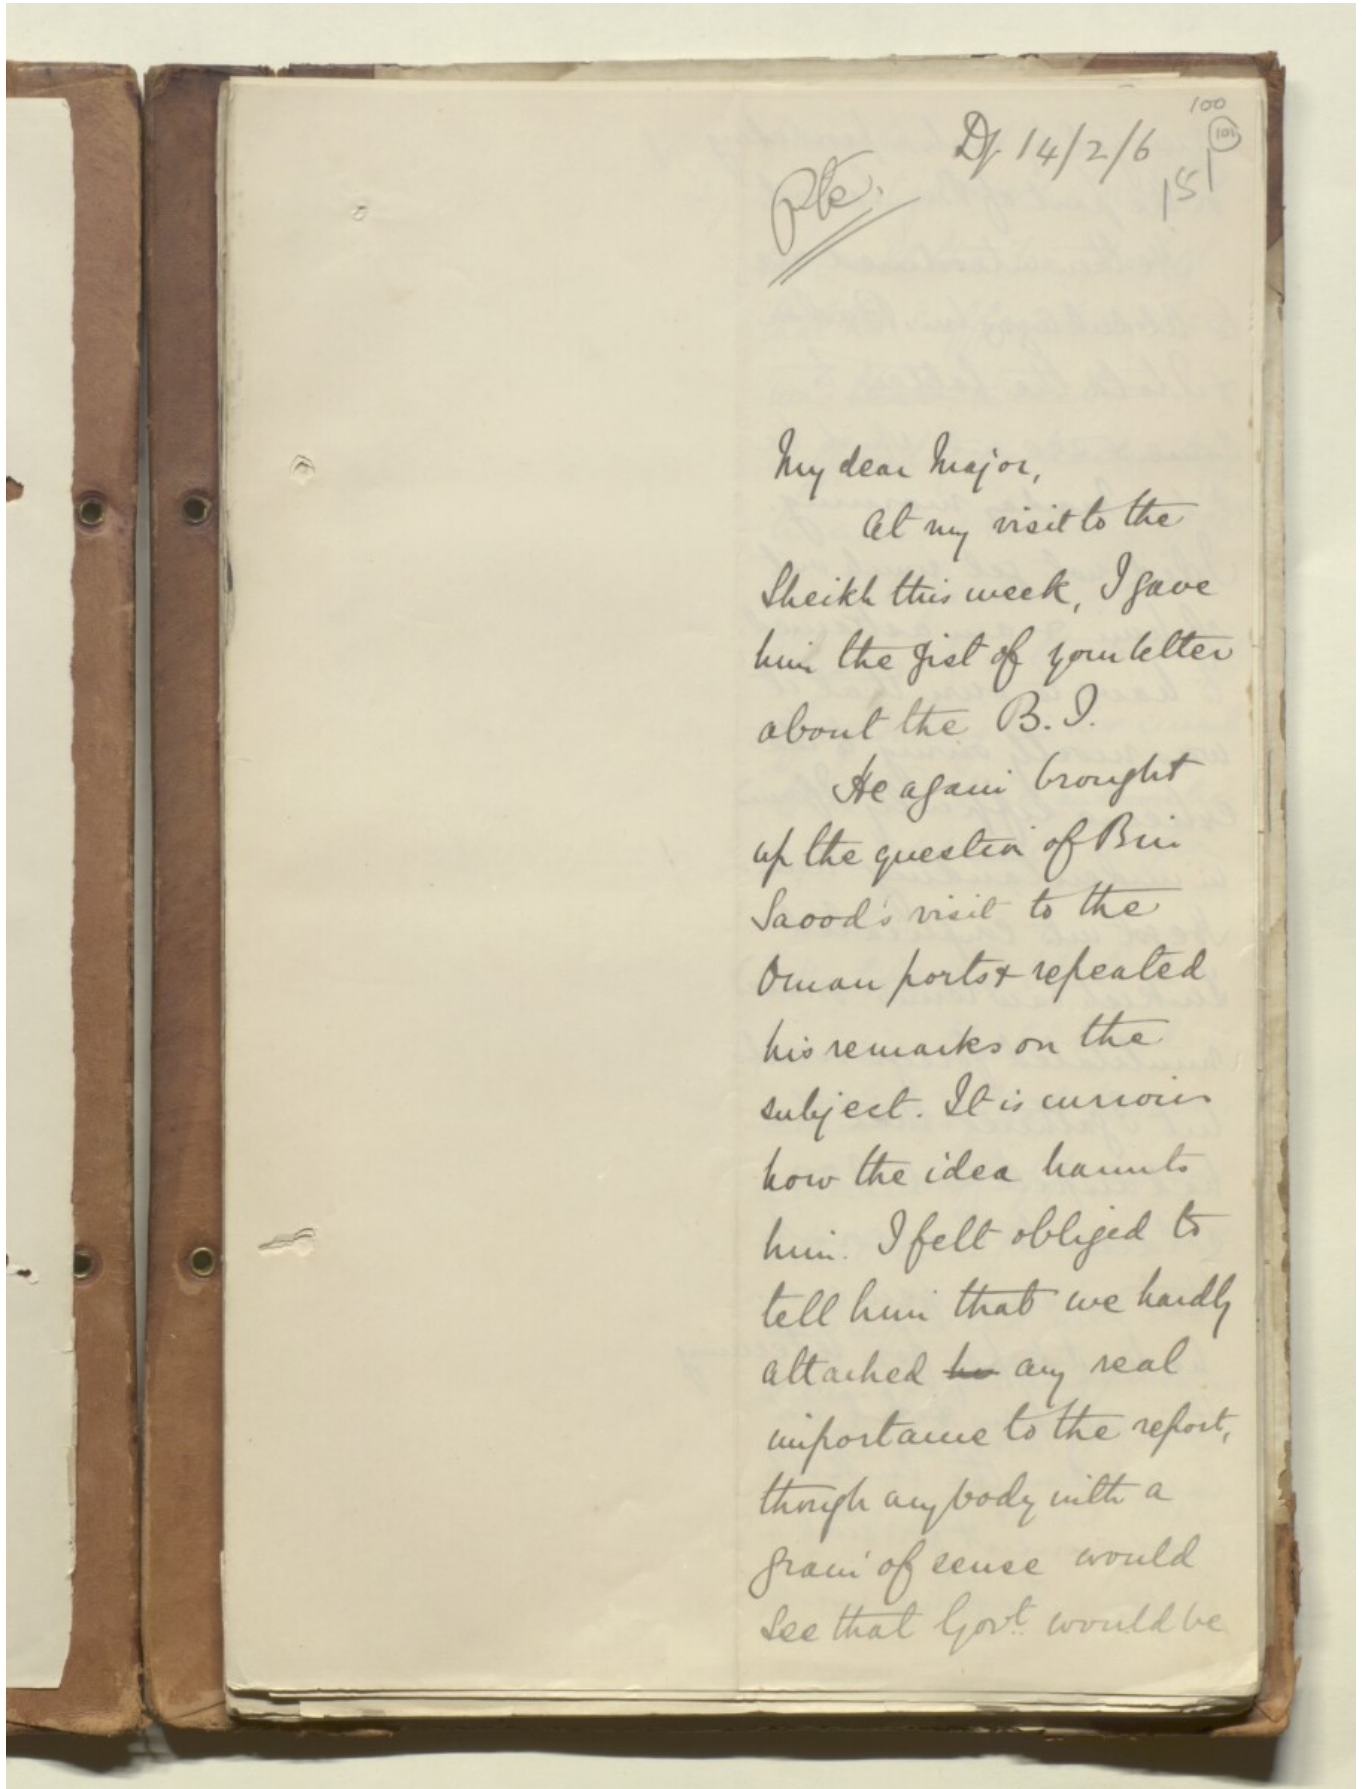 100
101
Df 14/2/6
151
Pte.
My dear Major,
At my visit to the
Sheikh this week, I gave
him the gist of your letter
about the B.I.
He again brought
up the question of Bin
Saood's visit to the
Oman ports & repeated
his remarks on the
subject. It is curious
how the idea haunts
him. I felt obliged to
tell him that we hardly
attached any real
importance to the report,
though anybody with a
grain of sense would
see that Govt. would be